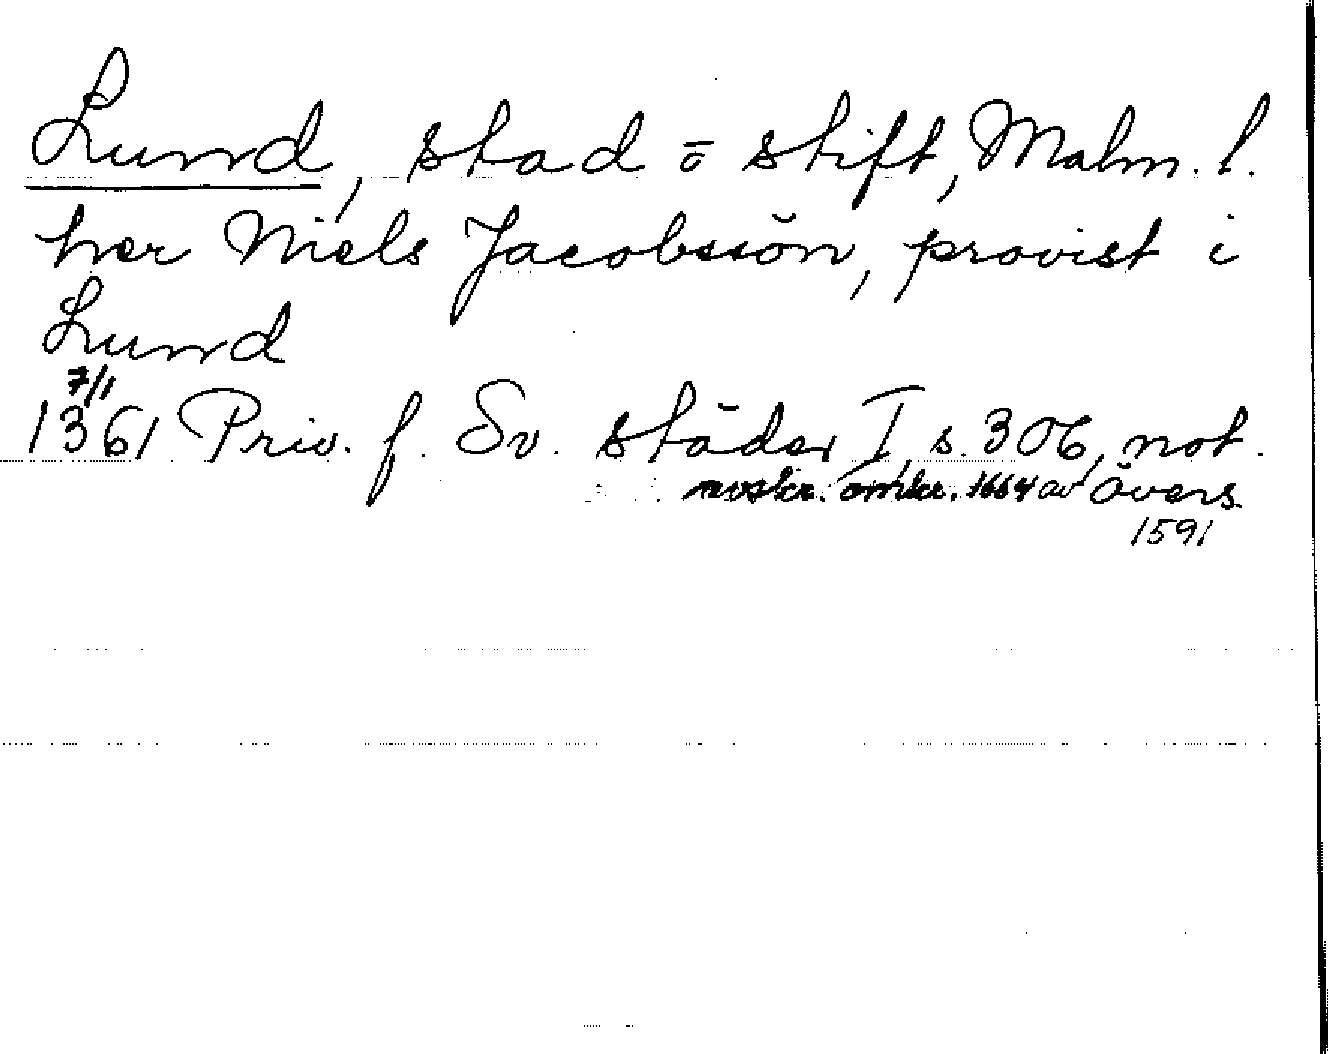 Lund, stad o stift, Malm. l.
her Niels Jacobssön, provist i
Lund
7/1
1361 Priv. f. Sv. städer I, s. 306, not.
avskr. omkr. 1664 av övers.
1591